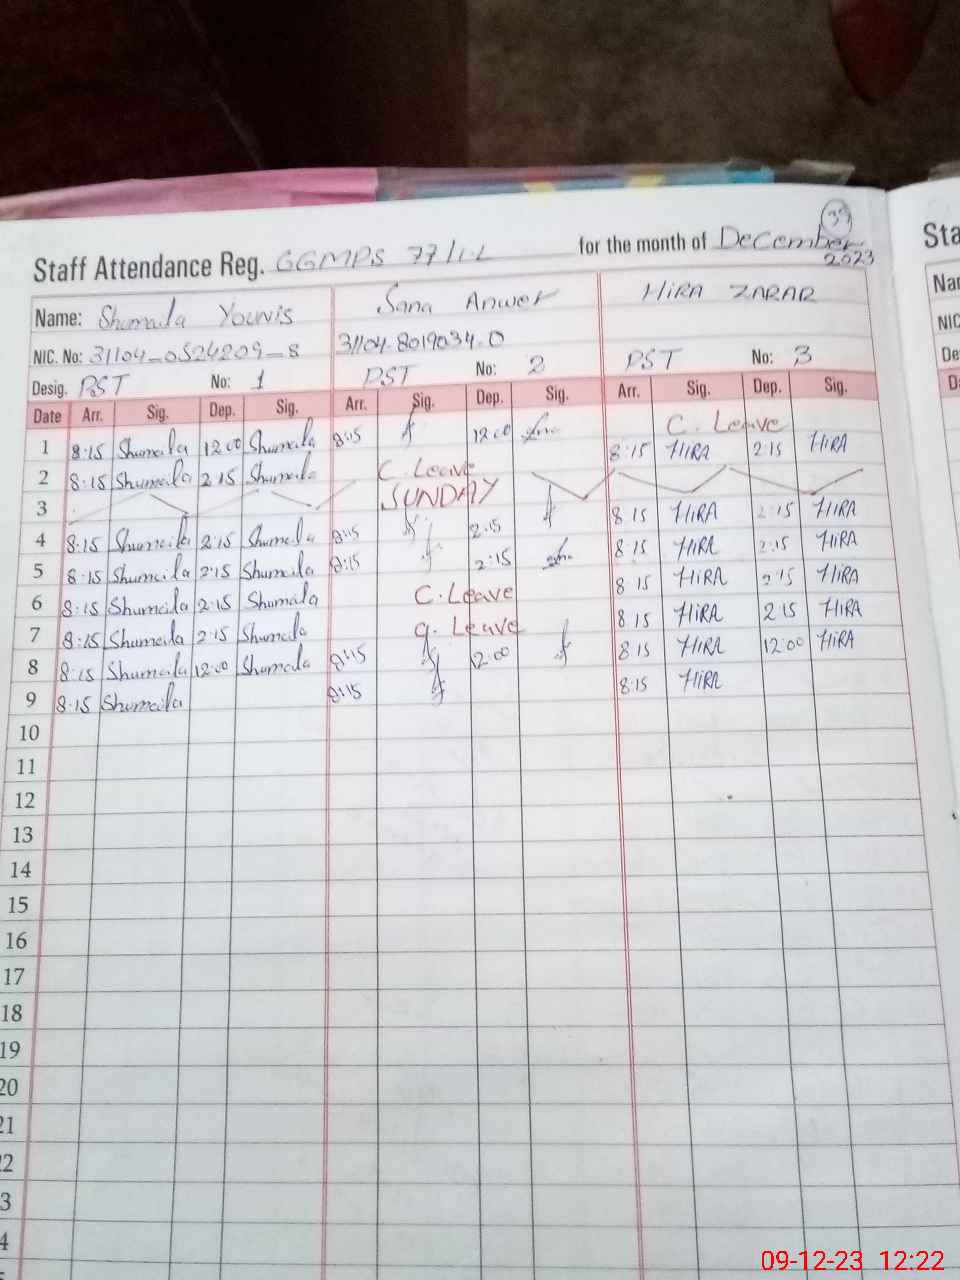 39
Staff Attendance Reg. GGMPS 77/1.L for the month of December 2023
Name: Shumaila Younis Sana Anwer HIRA ZARAR
NIC. No: 31104-0524209-8 31104.8019034.0
Desig. PST No: 1 PST No: 2 PST No: 3
Date Arr. Sig. Dep. Sig. Arr. Sig. Dep. Sig. Arr. Sig. Dep. Sig.
1 8:15 Shumaila 12:00 Shumaila 8:15 12:00 C. Leave
2 8:15 Shumaila 2:15 Shumaila C. Leave 8:15 HIRA 2:15 HIRA
3 SUNDAY
4 8:15 Shumaila 2:15 Shumaila 8:15 2:15 8:15 HIRA 2:15 HIRA
5 8:15 Shumaila 2:15 Shumaila 8:15 2:15 8:15 HIRA 2:15 HIRA
6 8:15 Shumaila 2:15 Shumaila C. Leave 8:15 HIRA 2:15 HIRA
7 8:15 Shumaila 2:15 Shumaila C. Leave 8:15 HIRA 2:15 HIRA
8 8:15 Shumaila 12:00 Shumaila 8:15 12:00 8:15 HIRA 12:00 HIRA
9 8:15 Shumaila 8:15 8:15 HIRA
10
11
12
13
14
15
16
17
18
19
20
21
22
3
4
Sta
Nar
NIC
De
D
09-12-23 12:22